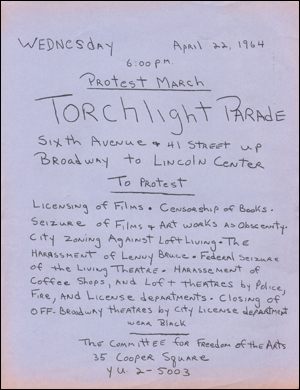 WEDNESday April 22, 1964
6:00 p.m.
Protest March
TORCHlight PARADE
Sixth Avenue & 41 Street up
Broadway to Lincoln Center
To Protest
Licensing of Films. Censorship of Books.
Seizure of Films & Art works as Obscenity.
City Zoning Against Loft Living. The
Harassment of Lenny Bruce. Federal Seizure
of the Living Theatre. Harassement of
Coffee Shops, and Loft theatres by Police,
Fire, and License departments. Closing of
OFF-Broadway theatres by City License department
wear Black
The Committee for Freedom of the Arts
35 Cooper Square
YU 2-5003